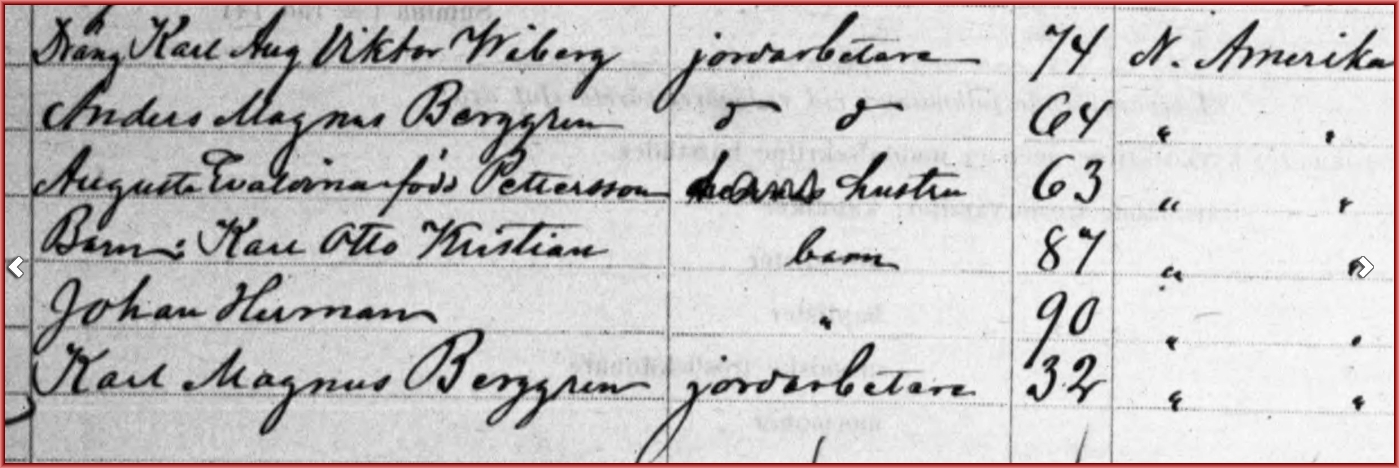 Dräng Karl Aug Viktor Wiberg jordarbetare 74 N. Amerika
Anders Magnus Berggren d d 64 " "
Augusta Evalvina född Pettersson hans hustru 63 " "
Barn: Karl Otto Kristian barn 87 " "
Johan Herman " 90 " "
Karl Magnus Berggren jordarbetare 32 " "